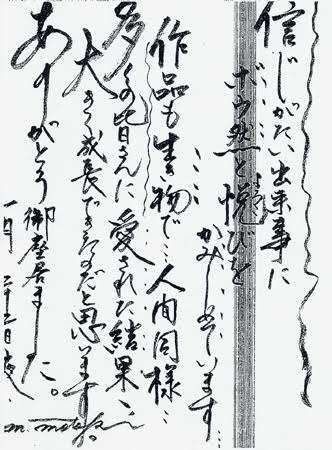 信じがたい出来事に
ボウ然と悦びを
かみしめています…
作品も生き物で…人間同様…
多くの皆さんに愛された結果…
大きく成長できたのだと思います。
ありがとう御座居ました。
一月二十二日